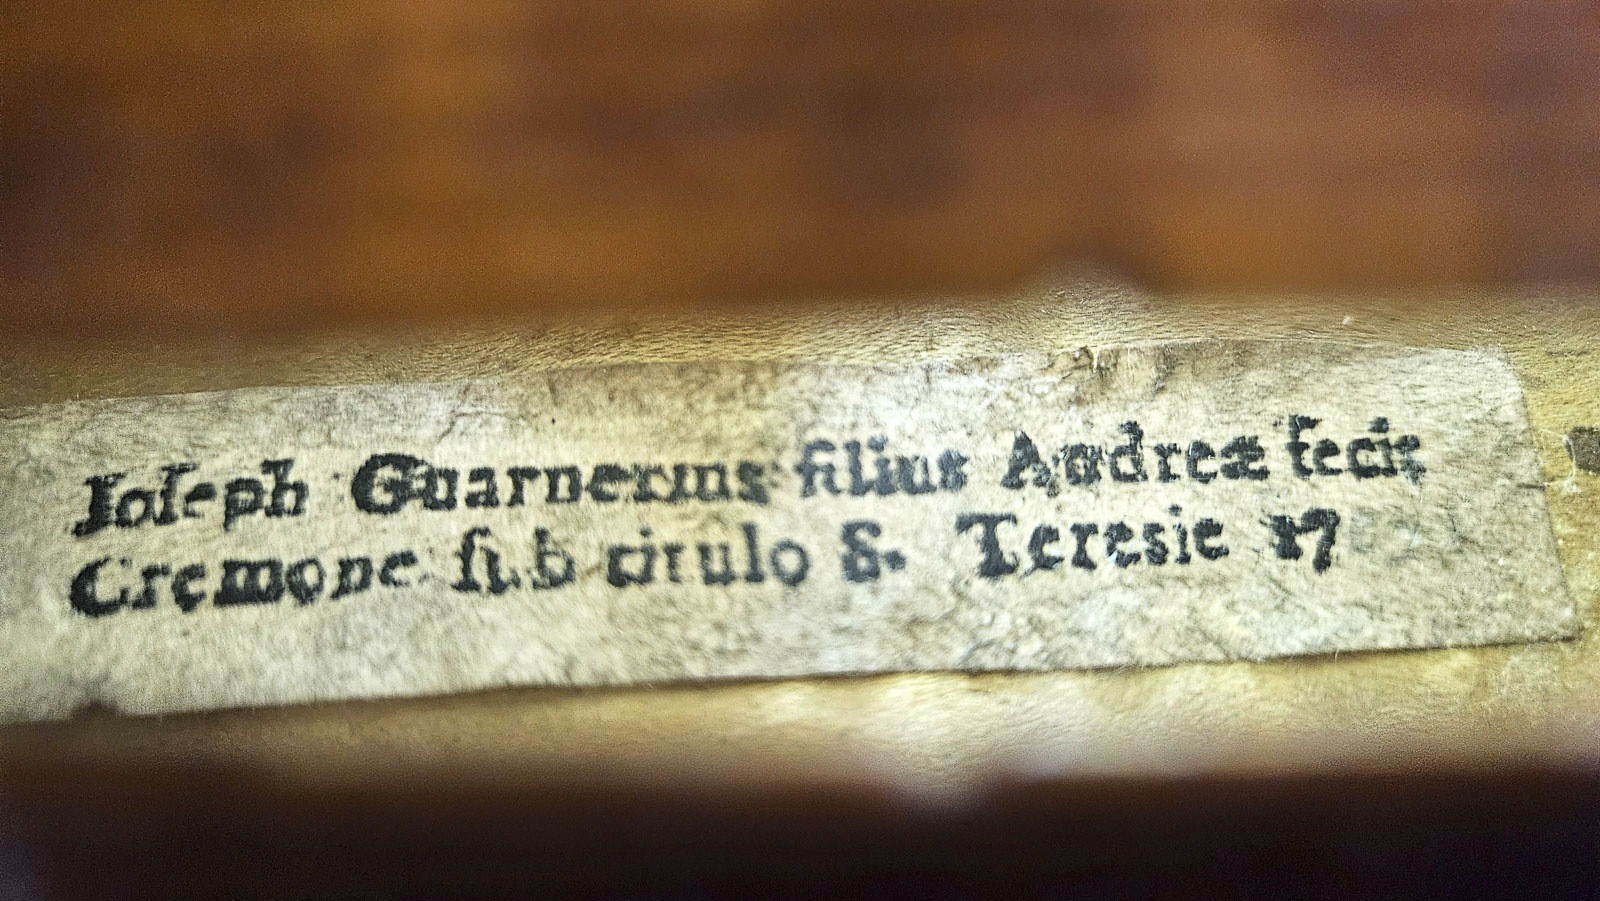 Ioſeph Guarnerius filius Andreæ fecit
Cremone ſub titulo S. Teresie 17